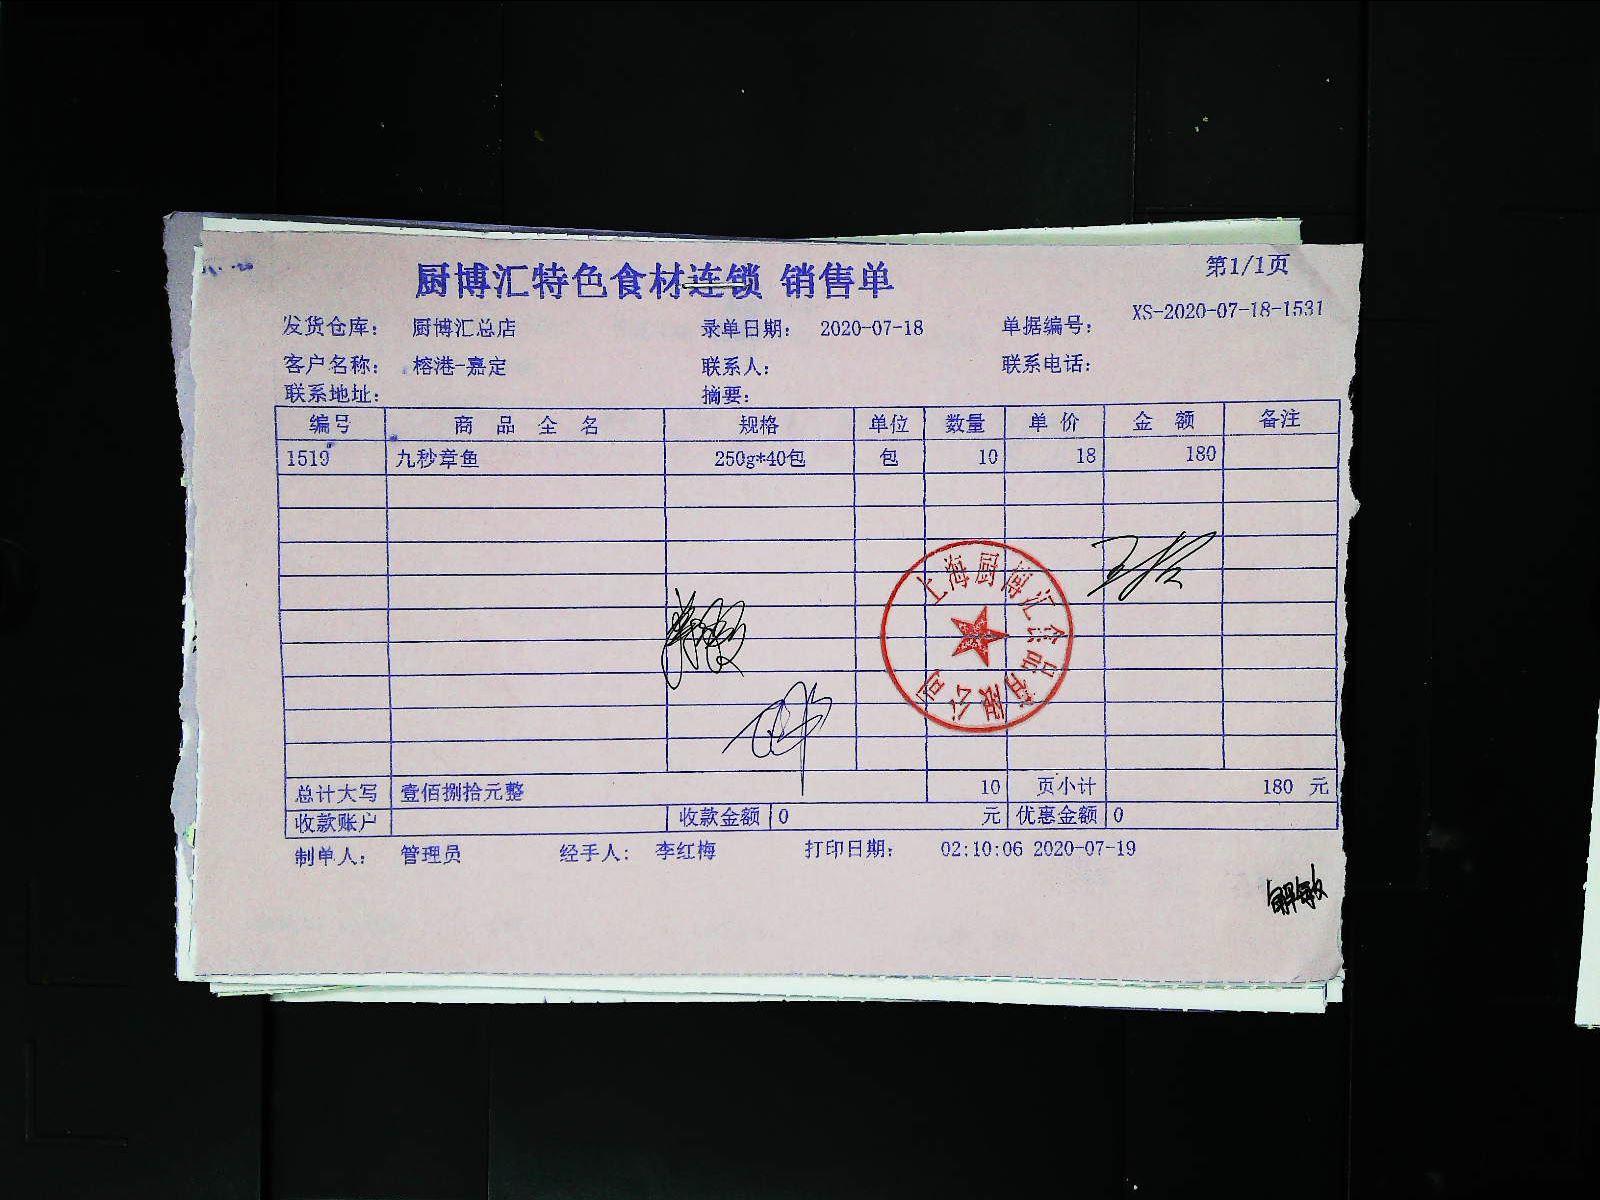 厨博汇特色食材连锁 销售单
第1/1页
发货仓库： 厨博汇总店 录单日期： 2020-07-18 单据编号： XS-2020-07-18-1531
客户名称： 榕港-嘉定 联系人： 联系电话：
联系地址： 摘要：
编号 商品全名 规格 单位 数量 单价 金额 备注
1519 九秒章鱼 250g*40包 包 10 18 180
上海厨博汇食品有限公司
总计大写 壹佰捌拾元整 10 页小计 180 元
收款账户 收款金额 0 元 优惠金额 0
制单人： 管理员 经手人： 李红梅 打印日期： 02:10:06 2020-07-19